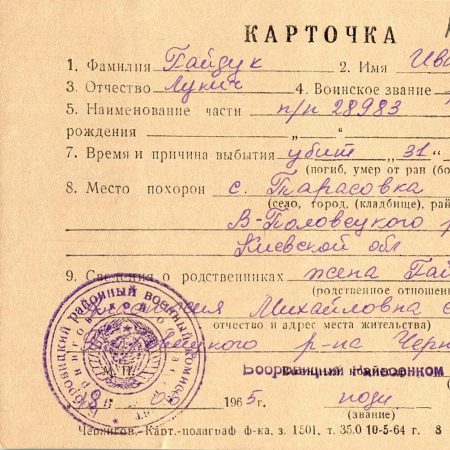 КАРТОЧКА
1. Фамилия Гайдук 2. Имя Ива
3. Отчество Лукич 4. Воинское звание
5. Наименование части п/п 28983
рождения „ “
7. Время и причина выбытия убит „31“
(погиб, умер от ран (бо
8. Место похорон с. Тарасовка
(село, город, (кладбище), рай
В-Половецкого р
Киевской обл
9. Сведения о родственниках жена Гай
(родственное отношен
Михайловна с
отчество и адрес места жительства)
р-на Черн
М. П. Бобровицкий Райвоенком
1965г. подп
(звание)
Чернигов.-Карт.-полиграф ф-ка, з. 1501, т. 35.0 10-5-64 г. 8